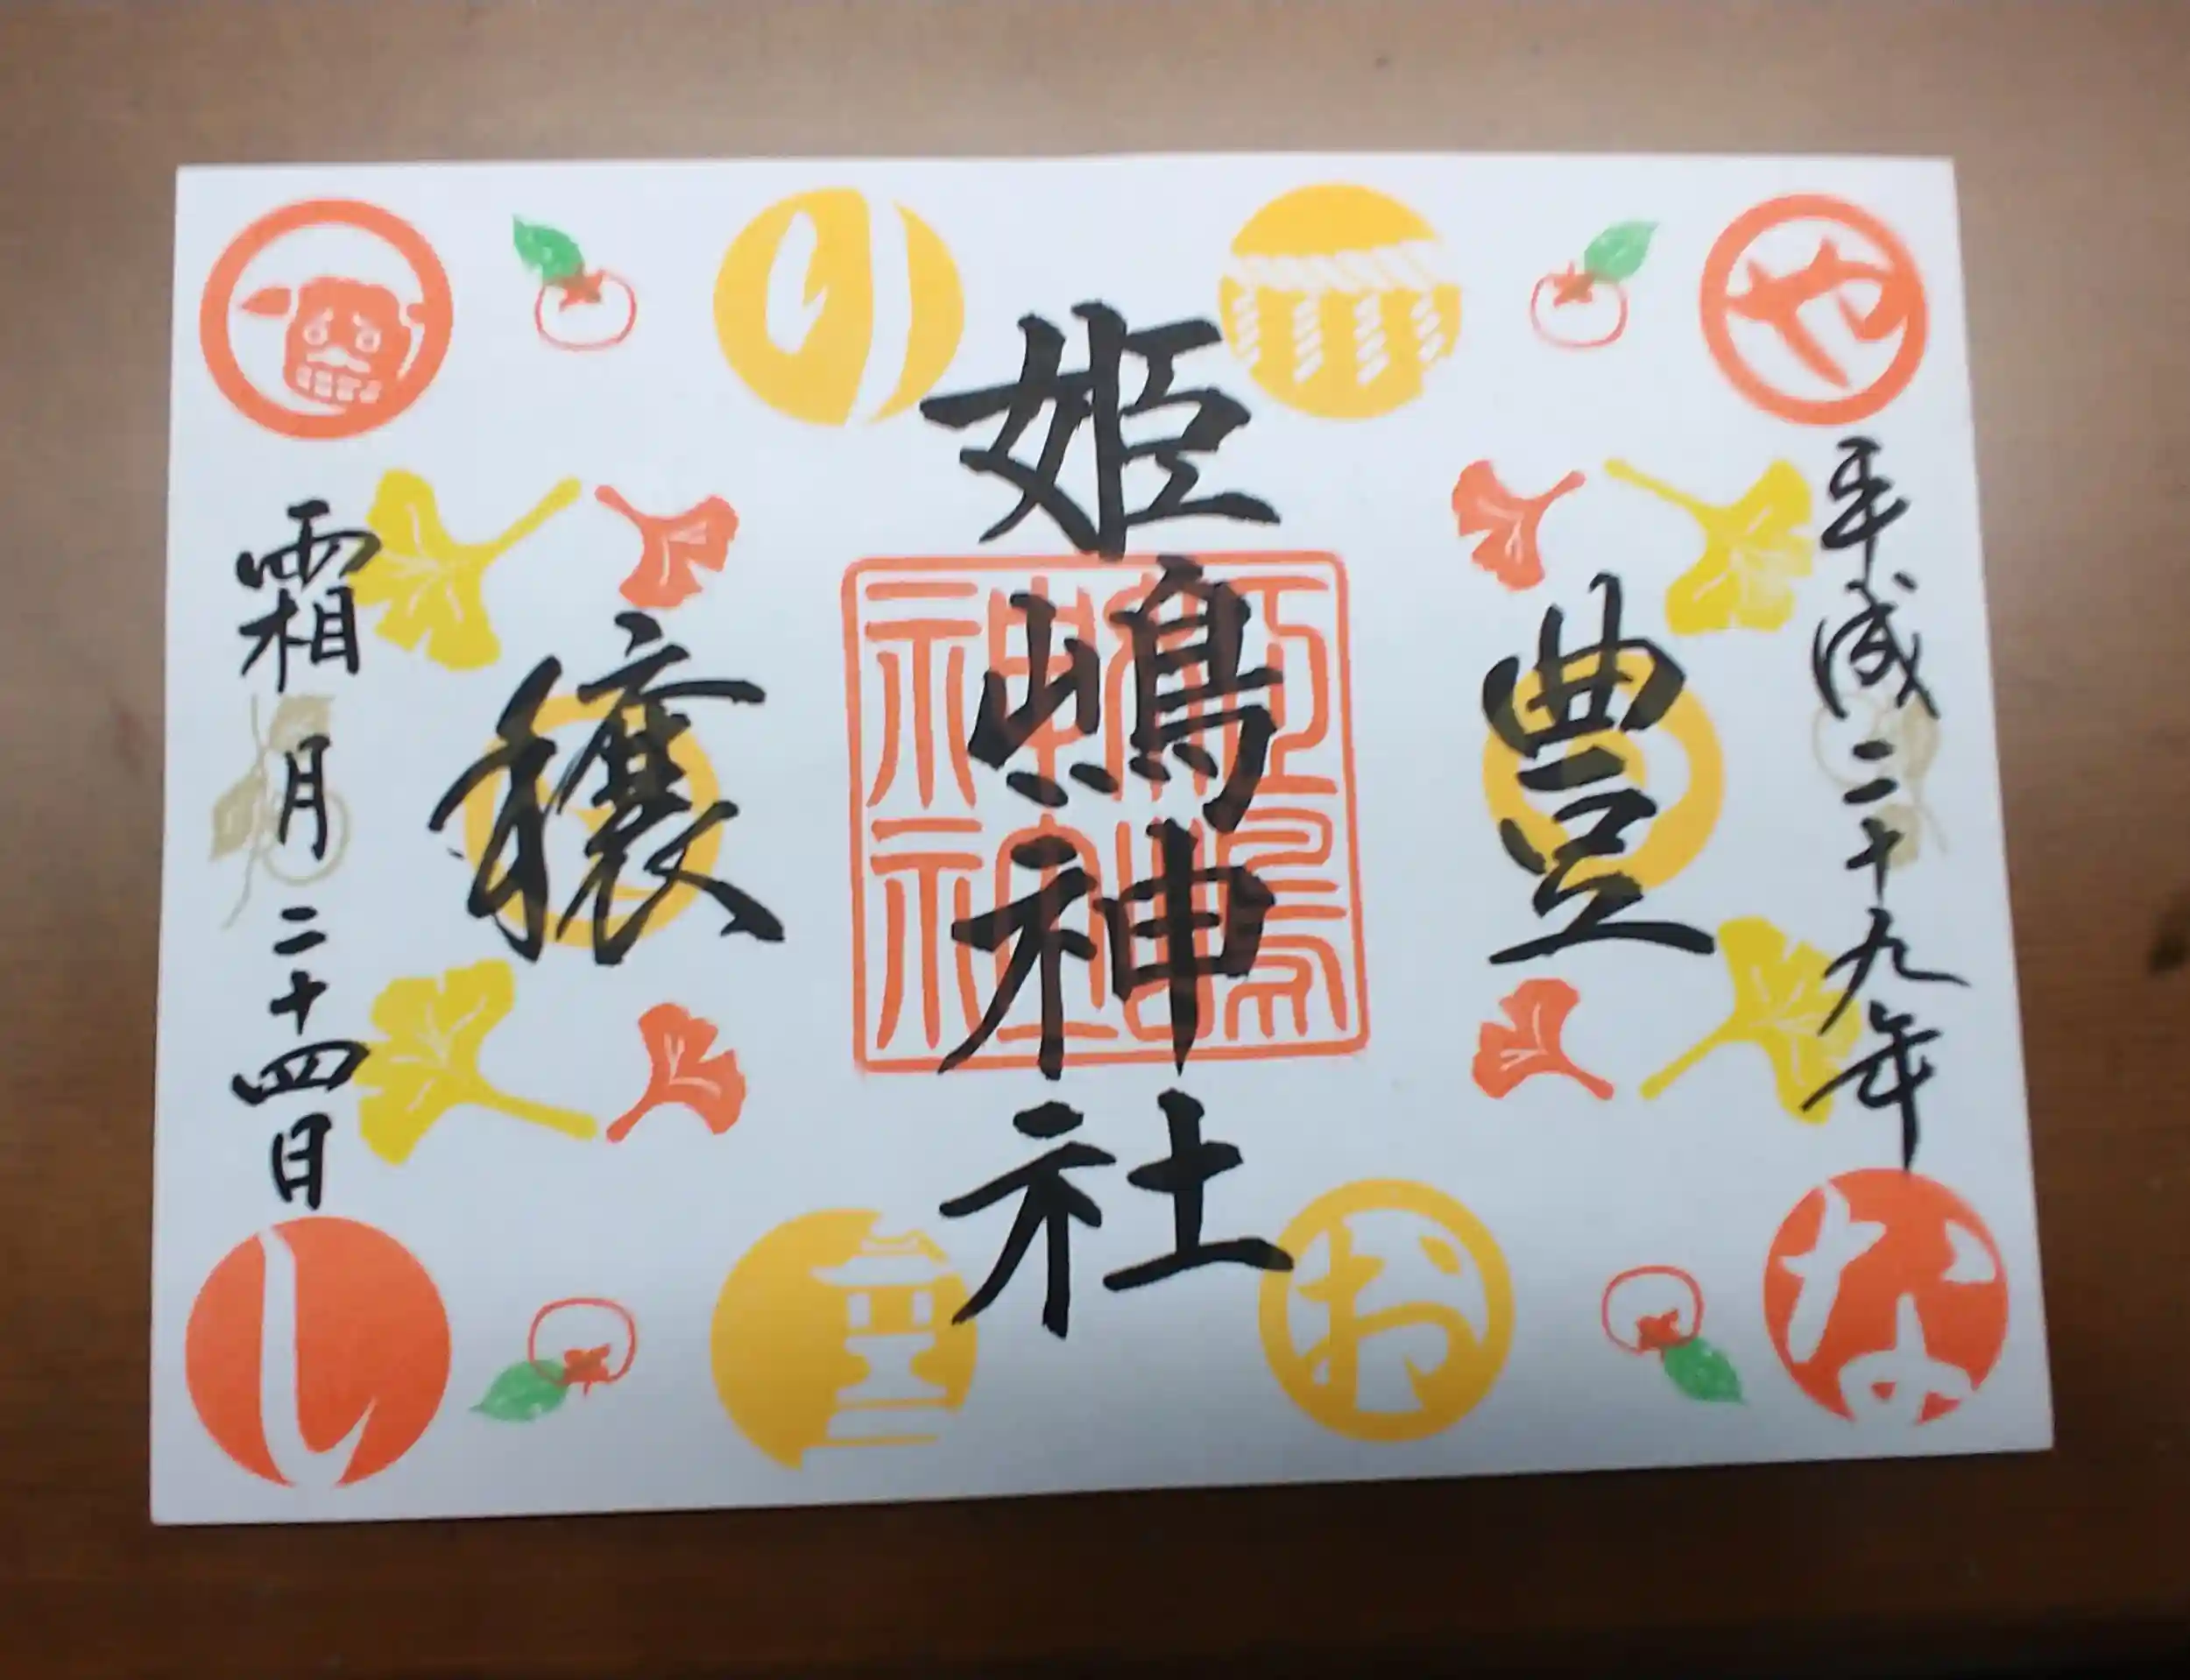 平成二十九年
豊
姫嶋神社
穣
霜月二十四日
や
の
な
お
し